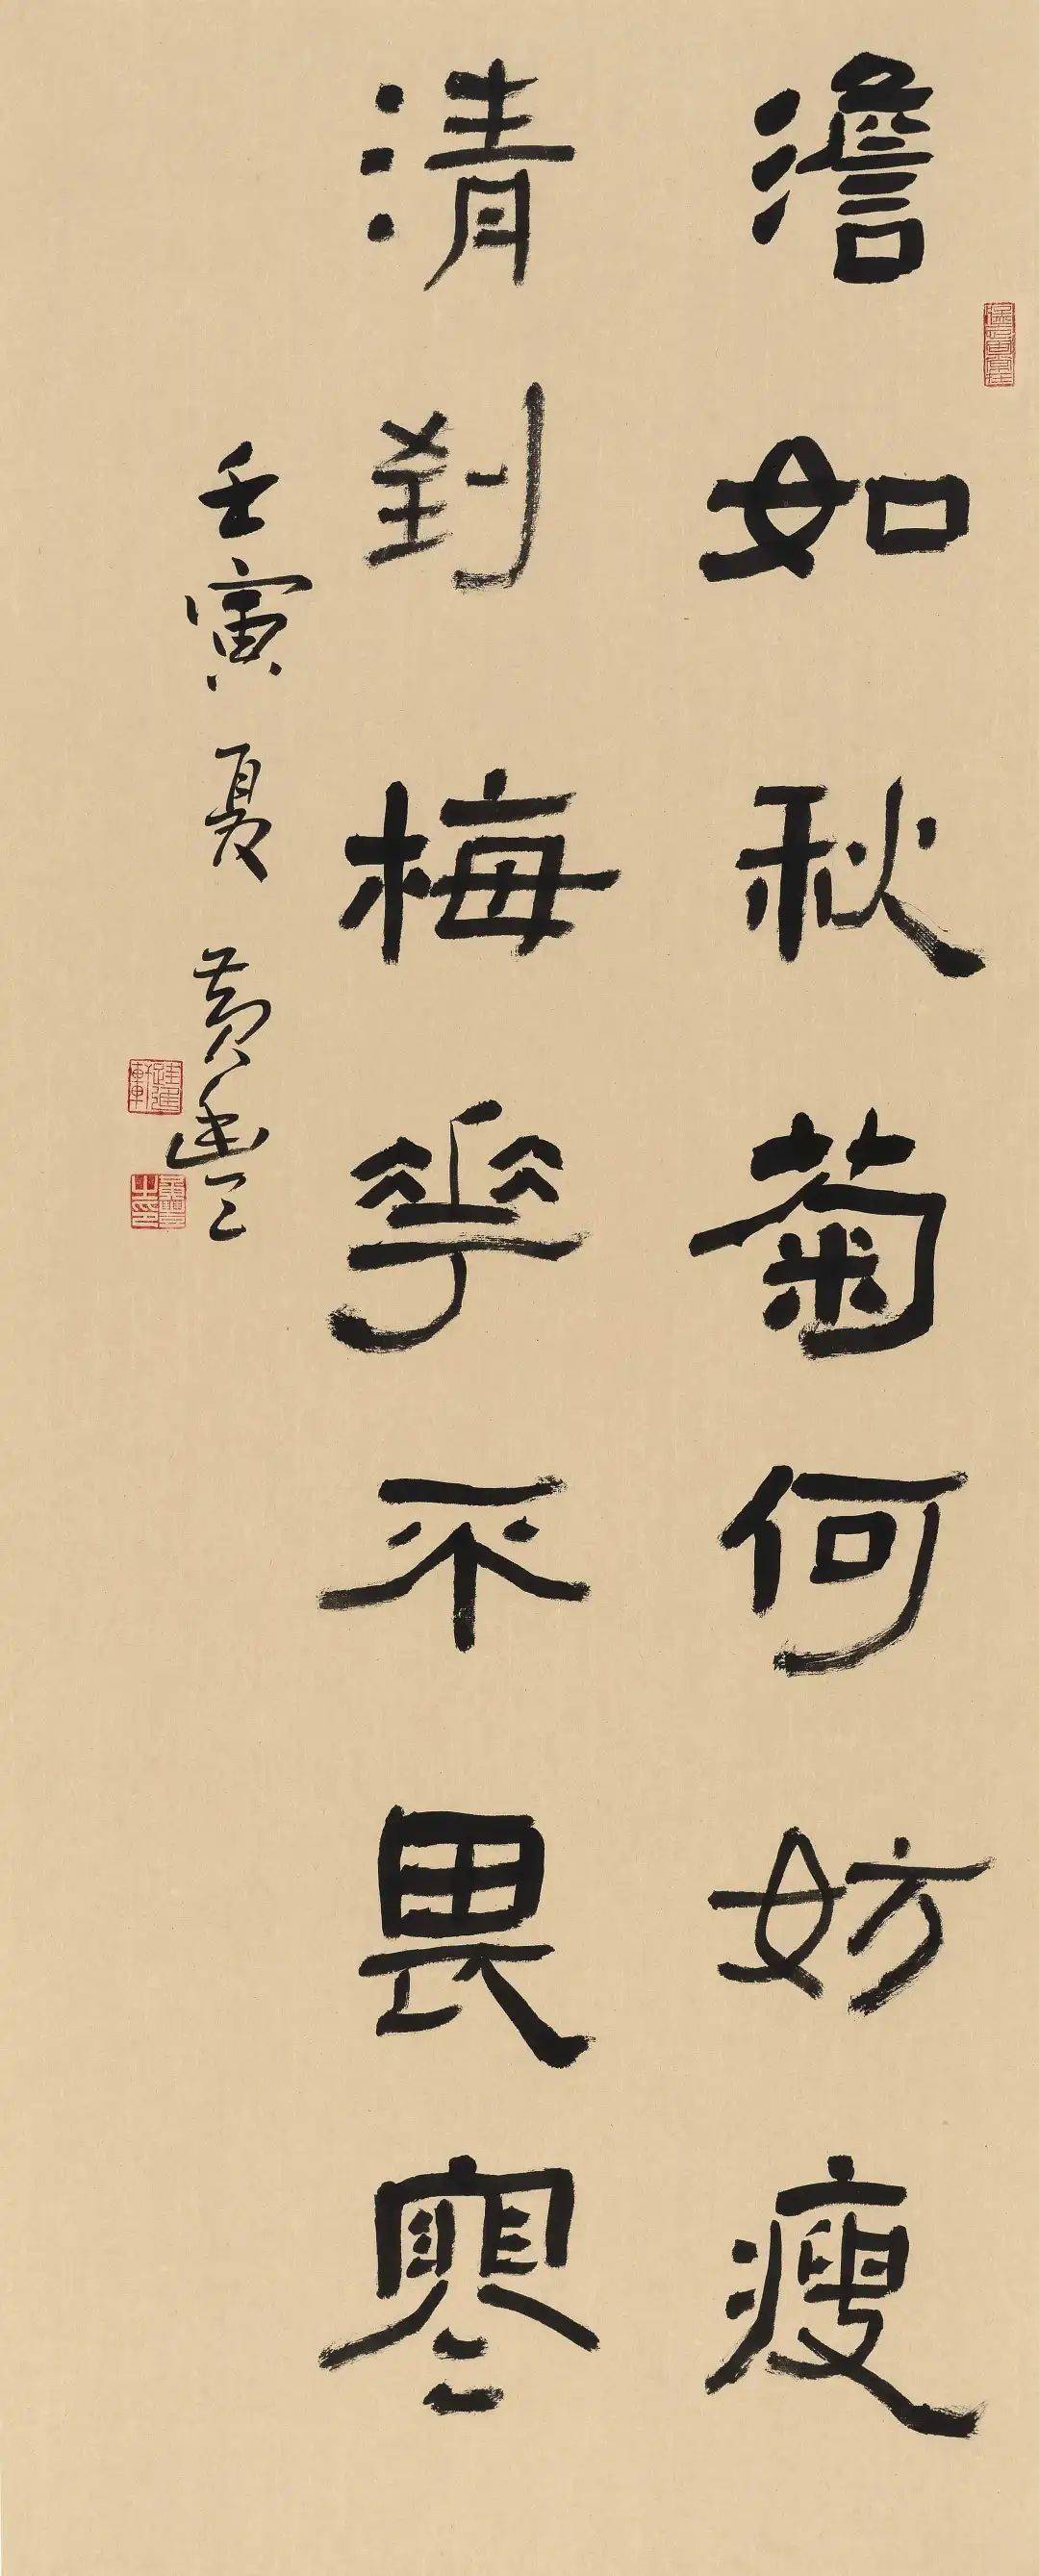 澹如秋菊何妨瘦
清到梅花不畏寒
壬寅夏黄